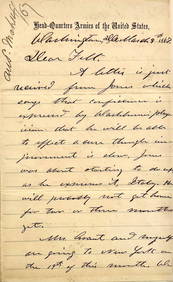 Head-Quarters Armies of the United States.
Washington, March 8th 1868
Dear Felt.
A letter is just
received from Jones which
says that confidence is
expressed by Washburne phys-
icians that he will be able
to effect a cure though im-
provement is slow. Jones
was about starting to
as he expresses it, Italy. He
will probably not get home
for two or three months
yet.
Mrs. Grant and myself
are going to New York on
the 19th of this month. We